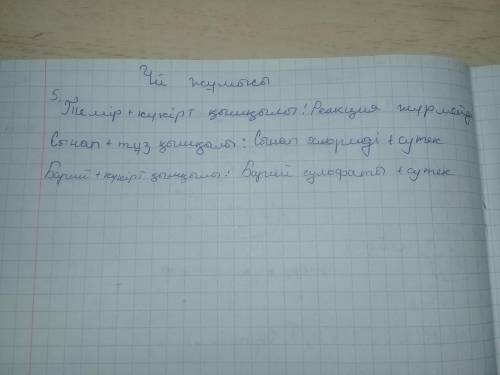 Үй жұмысы
5.
Темір + күкірт қышқылы: Реакция жүрмейді
Сынап + тұз қышқылы: Сынап хлориді + сутек
Барий + күкірт қышқылы: Барий сульфаты + сутек